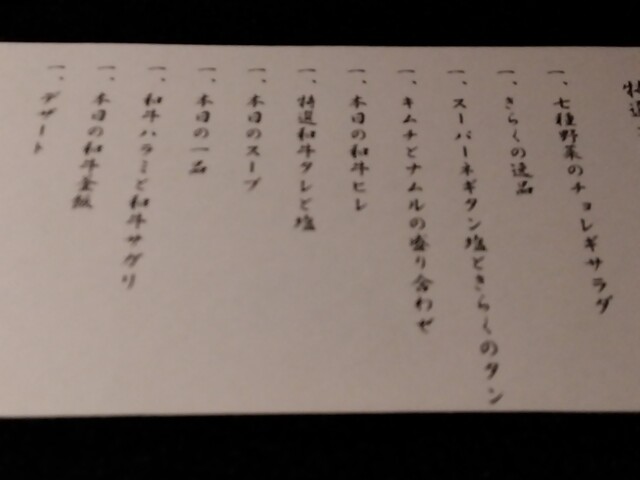 特選
一、七種野菜のチョレギサラダ
一、きらくの逸品
一、スーパーネギタン塩ときらくのタン
一、キムチとナムルの盛り合わせ
一、本日の和牛ヒレ
一、特選和牛タレと塩
一、本日のスープ
一、本日の一品
一、和牛ハラミと和牛サガリ
一、本日の和牛釜飯
一、デザート